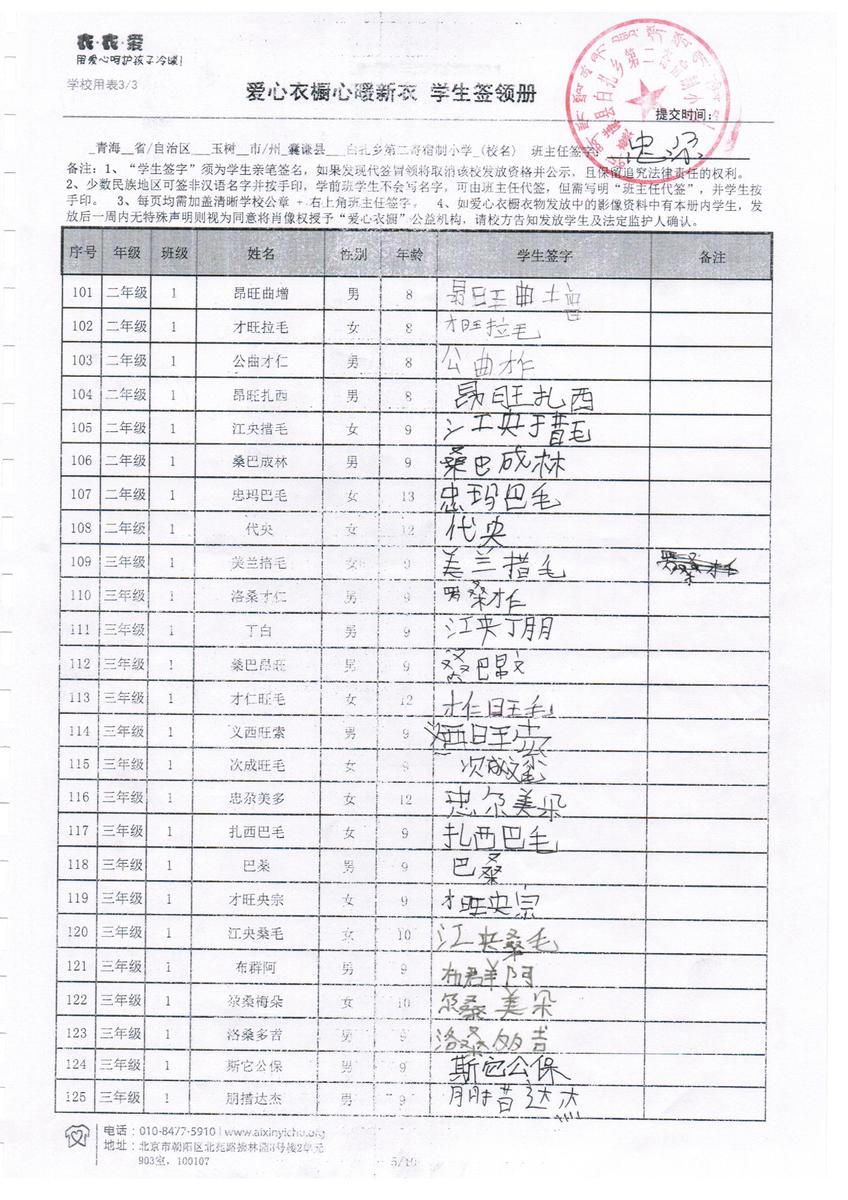 衣·衣·爱
用爱心呵护孩子冷暖!
学校用表3/3
爱心衣橱心暖新衣 学生签领册
提交时间:
_青海__省/自治区___玉树__市/州_囊谦县___白扎乡第二寄宿制小学_(校名) 班主任签字:
备注:1、“学生签字”须为学生亲笔签名,如果发现代签冒领将取消该校发放资格并公示,且保留追究法律责任的权利。
2、少数民族地区可签非汉语名字并按手印,学前班学生不会写名字,可由班主任代签,但需写明“班主任代签”,并学生按
手印。 3、每页均需加盖清晰学校公章 + 右上角班主任签字。 4、如爱心衣橱衣物发放中的影像资料中有本册内学生,发
放后一周内无特殊声明则视为同意将肖像权授予“爱心衣橱”公益机构,请校方告知发放学生及法定监护人确认。
序号 年级 班级 姓名 性别 年龄 学生签字 备注
101 二年级 1 昂旺曲增 男 8 昂旺曲增
102 二年级 1 才旺拉毛 女 8 才旺拉毛
103 二年级 1 公曲才仁 男 8 公曲才
104 二年级 1 昂旺扎西 男 8 昂旺扎西
105 二年级 1 江央措毛 女 9 江央措毛
106 二年级 1 桑巴成林 男 9 桑巴成林
107 二年级 1 忠玛巴毛 女 13 忠玛巴毛
108 二年级 1 代央 女 12 代央
109 三年级 1 美兰措毛 女 9 美兰措毛
110 三年级 1 洛桑才仁 男 9 桑才仁
111 三年级 1 丁白 男 9 江央丁朋
112 三年级 1 桑巴昂旺 男 9 桑巴
113 三年级 1 才仁旺毛 女 12 才仁旺毛
114 三年级 1 义西旺索 男 9
115 三年级 1 次成旺毛 女 9 次
116 三年级 1 忠尕美多 女 12 忠尕美朵
117 三年级 1 扎西巴毛 女 9 扎西巴毛
118 三年级 1 巴桑 男 9 巴桑
119 三年级 1 才旺央宗 女 9 才旺央宗
120 三年级 1 江央桑毛 女 10 江央桑毛
121 三年级 1 布群阿 男 9 布群阿
122 三年级 1 尕桑梅朵 女 10 尕桑美朵
123 三年级 1 洛桑多吉 男 9 洛桑多吉
124 三年级 1 斯它公保 男 9 斯它公保
125 三年级 1 朋措达杰 男 9 朋措达
电话:010-8477-5910 | www.aixinyichu.org
地址:北京市朝阳区北苑路
903室,100107
5/10